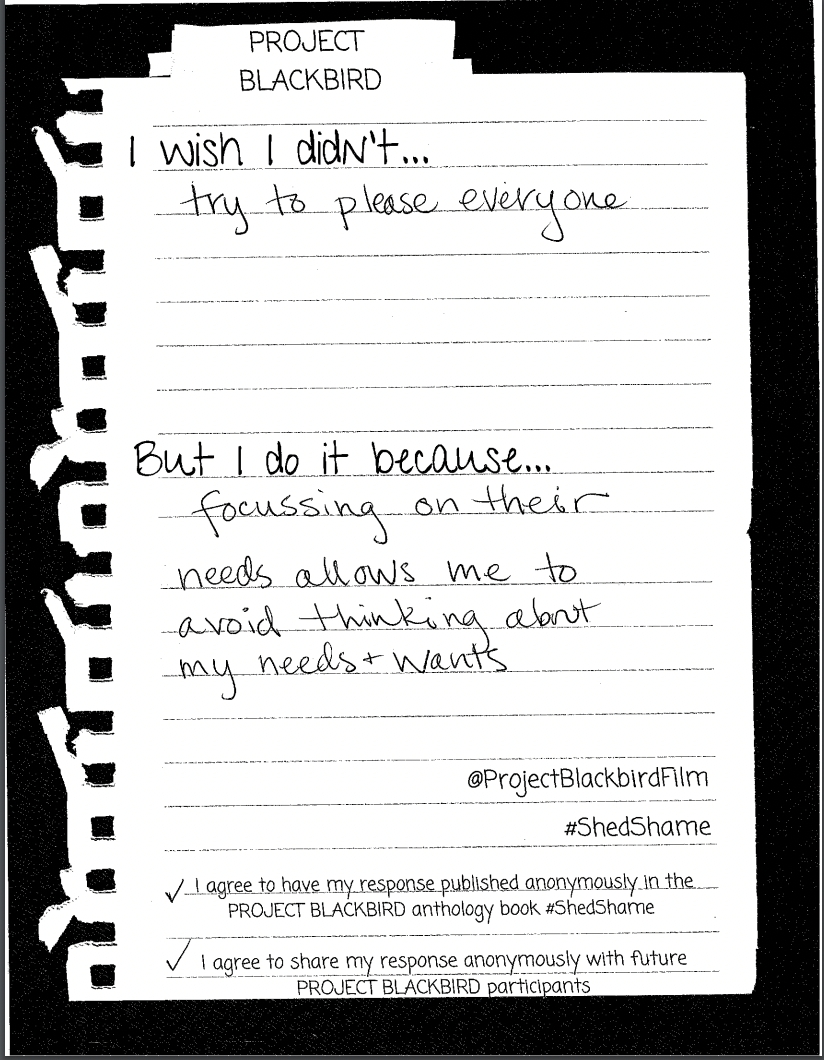 PROJECT
BLACKBIRD
I wish I didn't...
try to please everyone
But I do it because...
focussing on their
needs allows me to
avoid thinking about
my needs + wants
@ProjectBlackbirdFilm
#ShedShame
✓ I agree to have my response published anonymously in the
PROJECT BLACKBIRD anthology book #ShedShame
✓ I agree to share my response anonymously with future
PROJECT BLACKBIRD participants